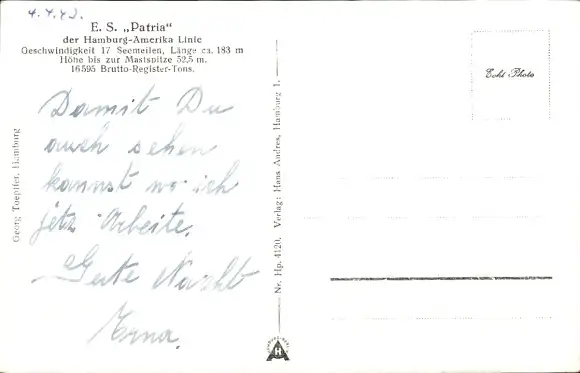 4.4.42.
E. S. „Patria“
der Hamburg-Amerika Linie
Geschwindigkeit 17 Seemeilen, Länge ca. 183 m
Höhe bis zur Mastspitze 52,5 m.
16 595 Brutto-Register-Tons.
Damit Du
auch sehen
kannst wo ich
jetz Arbeite.
Gute Nacht
Erna.
Georg Toepffer, Hamburg
Nr. Hp. 4120. Verlag: Hans Andres, Hamburg 1.
Echt Photo
H